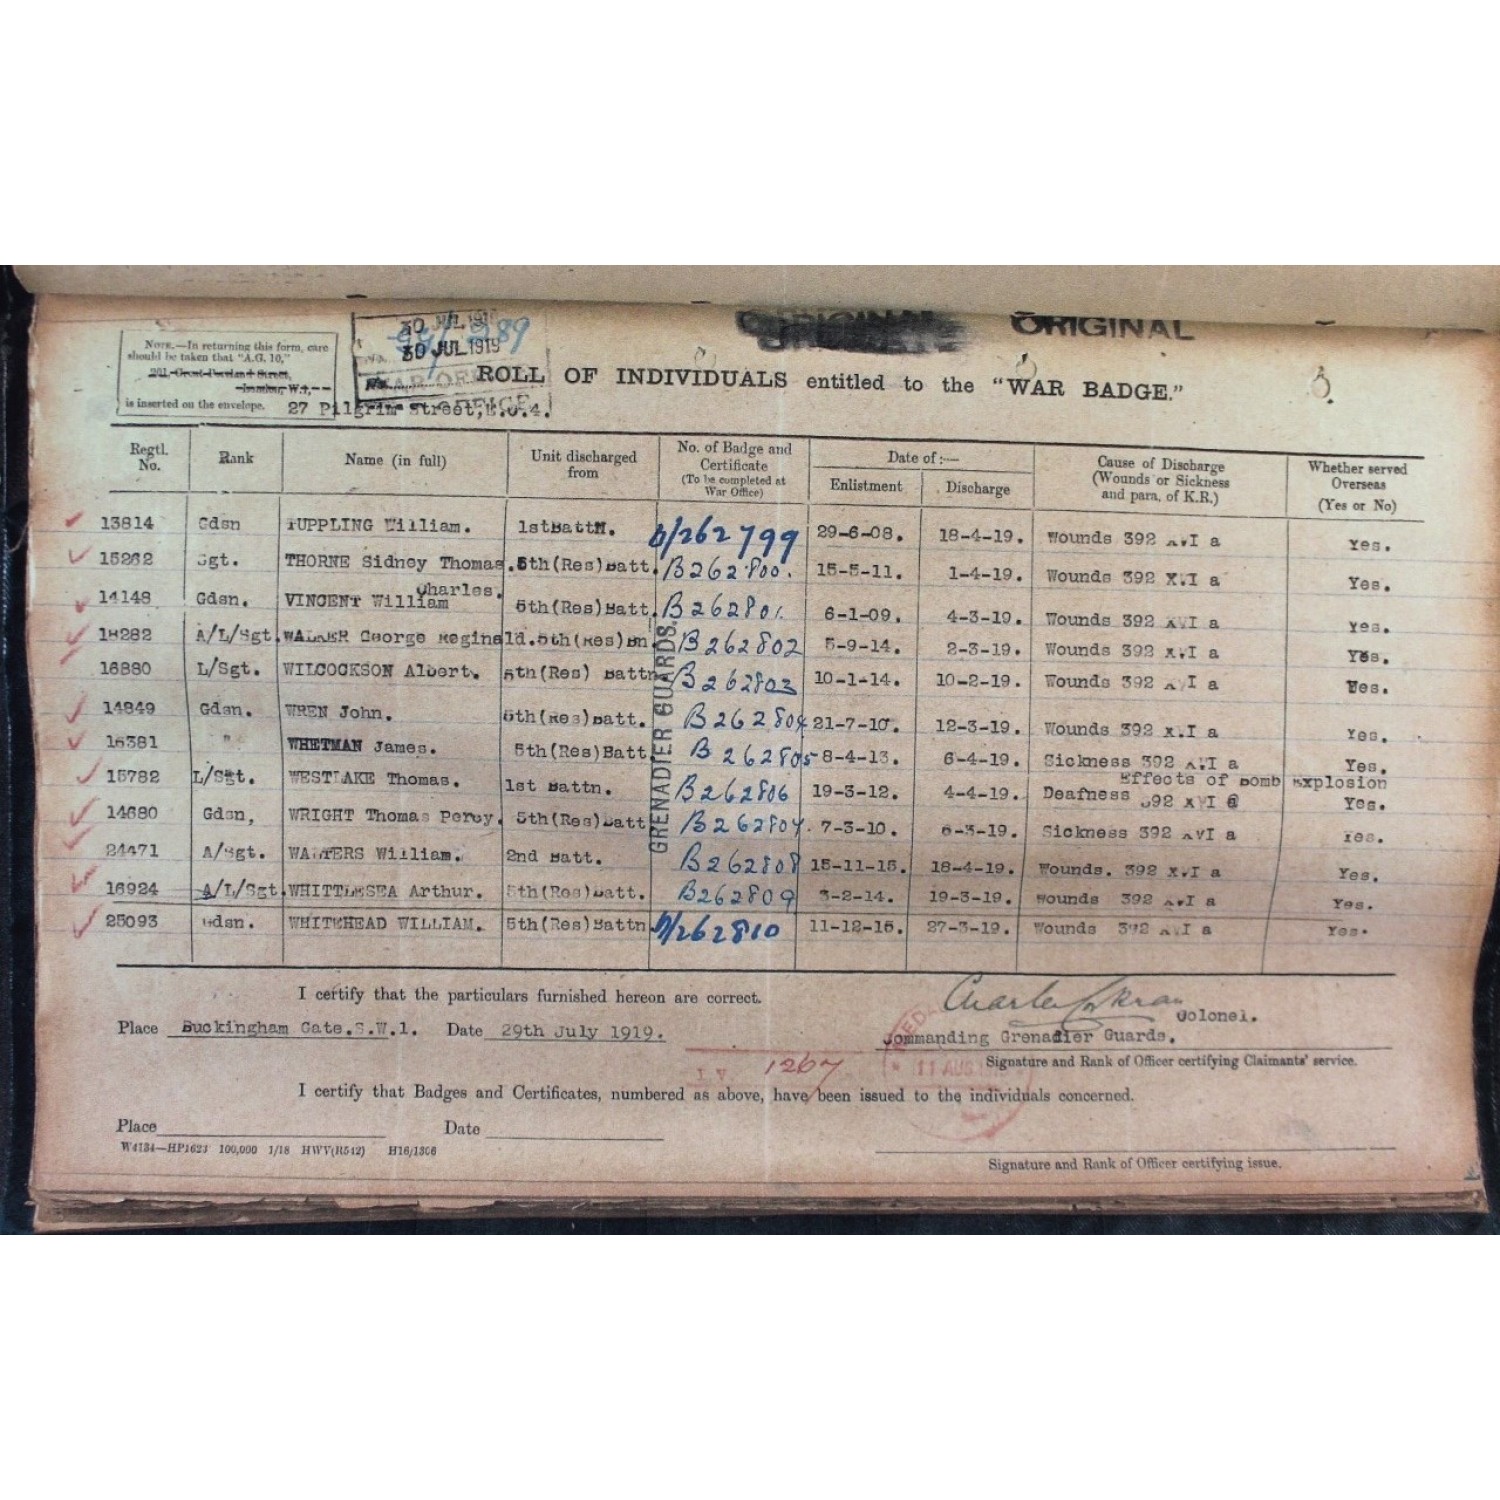 ORIGINAL
NOTE.—In returning this form, care
should be taken that "A.G. 10,"
is inserted on the envelope. 27 Pilgrim Street, E.C.4.
30 JUL 1919
ROLL OF INDIVIDUALS entitled to the "WAR BADGE."
Regtl. No. Rank Name (in full) Unit discharged from No. of Badge and Certificate (To be completed at War Office) Date of :— Enlistment Discharge Cause of Discharge (Wounds or Sickness and para. of K.R.) Whether served Overseas (Yes or No)
13814 Gdsn TUPPLING William. 1stBattN. B/262799 29-6-08. 18-4-19. Wounds 392 XVI a Yes.
15262 Sgt. THORNE Sidney Thomas. 5th(Res)Batt. B262800. 15-5-11. 1-4-19. Wounds 392 XVI a Yes.
14148 Gdsn. VINCENT William Charles. 5th(Res)Batt. B262801. 6-1-09. 4-3-19. Wounds 392 XVI a Yes.
18282 A/L/Sgt. WALKER George Reginald. 5th(Res)Bn B262802 5-9-14. 2-3-19. Wounds 392 XVI a Yes.
16880 L/Sgt. WILCOCKSON Albert. 5th(Res) Battn B262803 10-1-14. 10-2-19. Wounds 392 XVI a Yes.
14849 Gdsn. WREN John. 5th(Res)Batt. B262804 21-7-10. 12-3-19. Wounds 392 XVI a Yes.
16381 " WHETMAN James. 5th(Res)Batt B262805 8-4-13. 6-4-19. Sickness 392 XVI a Yes.
15782 L/Sgt. WESTLAKE Thomas. 1st Battn. B262806 19-3-12. 4-4-19. Effects of Bomb Explosion Deafness 392 XVI @ Yes.
14680 Gdsn, WRIGHT Thomas Percy. 5th(Res)Batt B262807. 7-3-10. 6-3-19. Sickness 392 XVI a Yes.
24471 A/Sgt. WALTERS William. 2nd Batt. B262808 15-11-15. 18-4-19. Wounds. 392 XVI a Yes.
16924 A/L/Sgt. WHITTLESEA Arthur. 5th(Res)Batt. B262809 3-2-14. 19-3-19. Wounds 392 XVI a Yes.
25093 Gdsn. WHITEHEAD WILLIAM. 5th(Res)Battn B/262810 11-12-15. 27-3-19. Wounds 392 XVI a Yes.
GRENADIER GUARDS.
I certify that the particulars furnished hereon are correct.
Colonel.
Place Buckingham Gate.S.W.1. Date 29th July 1919.
Commanding Grenadier Guards.
Signature and Rank of Officer certifying Claimants' service.
1267
11 AUG
I certify that Badges and Certificates, numbered as above, have been issued to the individuals concerned.
Place Date
W4134—HP1623 100,000 1/18 HWV(R542) H16/1306
Signature and Rank of Officer certifying issue.